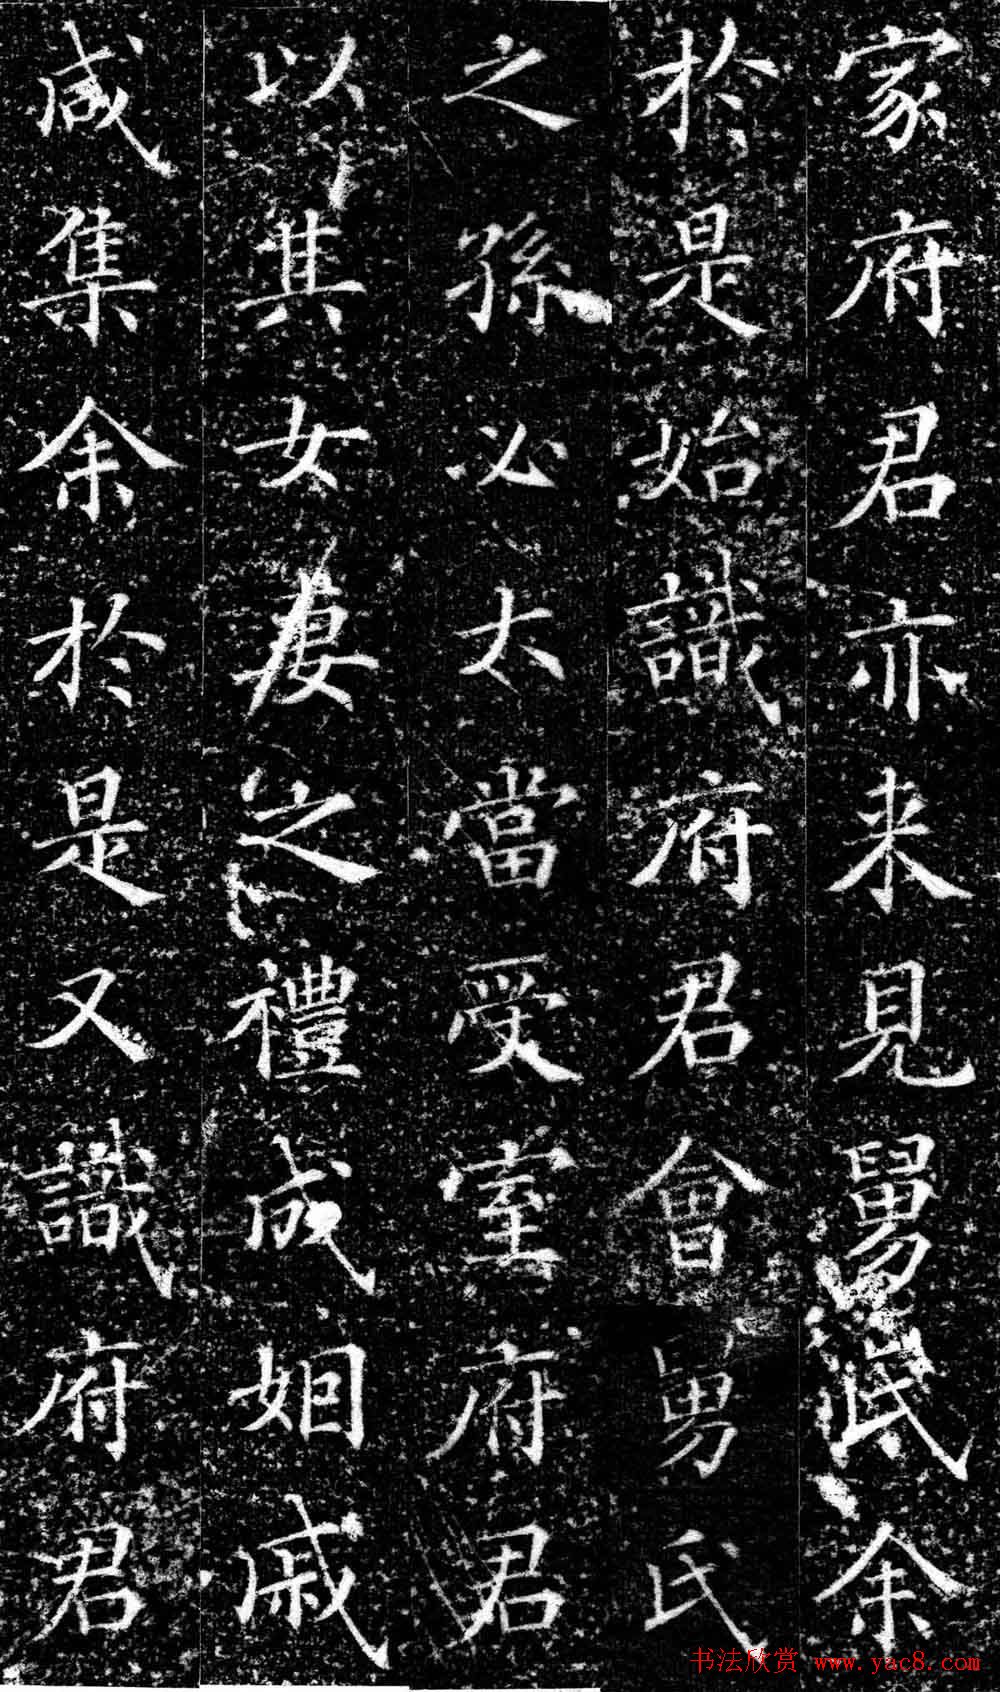 家府君亦来見舅氏余
於是始識府君會舅氏
之孫必大當受室府君
以其女妻之禮成姻戚
咸集余於是又識府君
书法欣赏 www.yac8.com